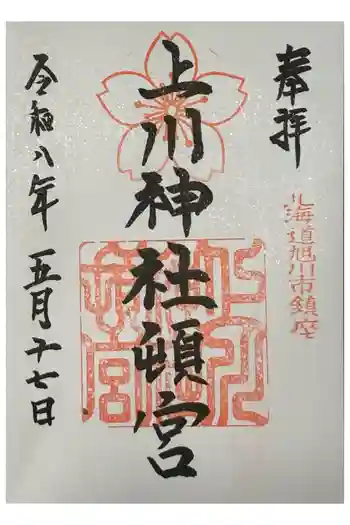 奉拝
北海道旭川市鎮座
上川神社頓宮
令和八年五月十七日